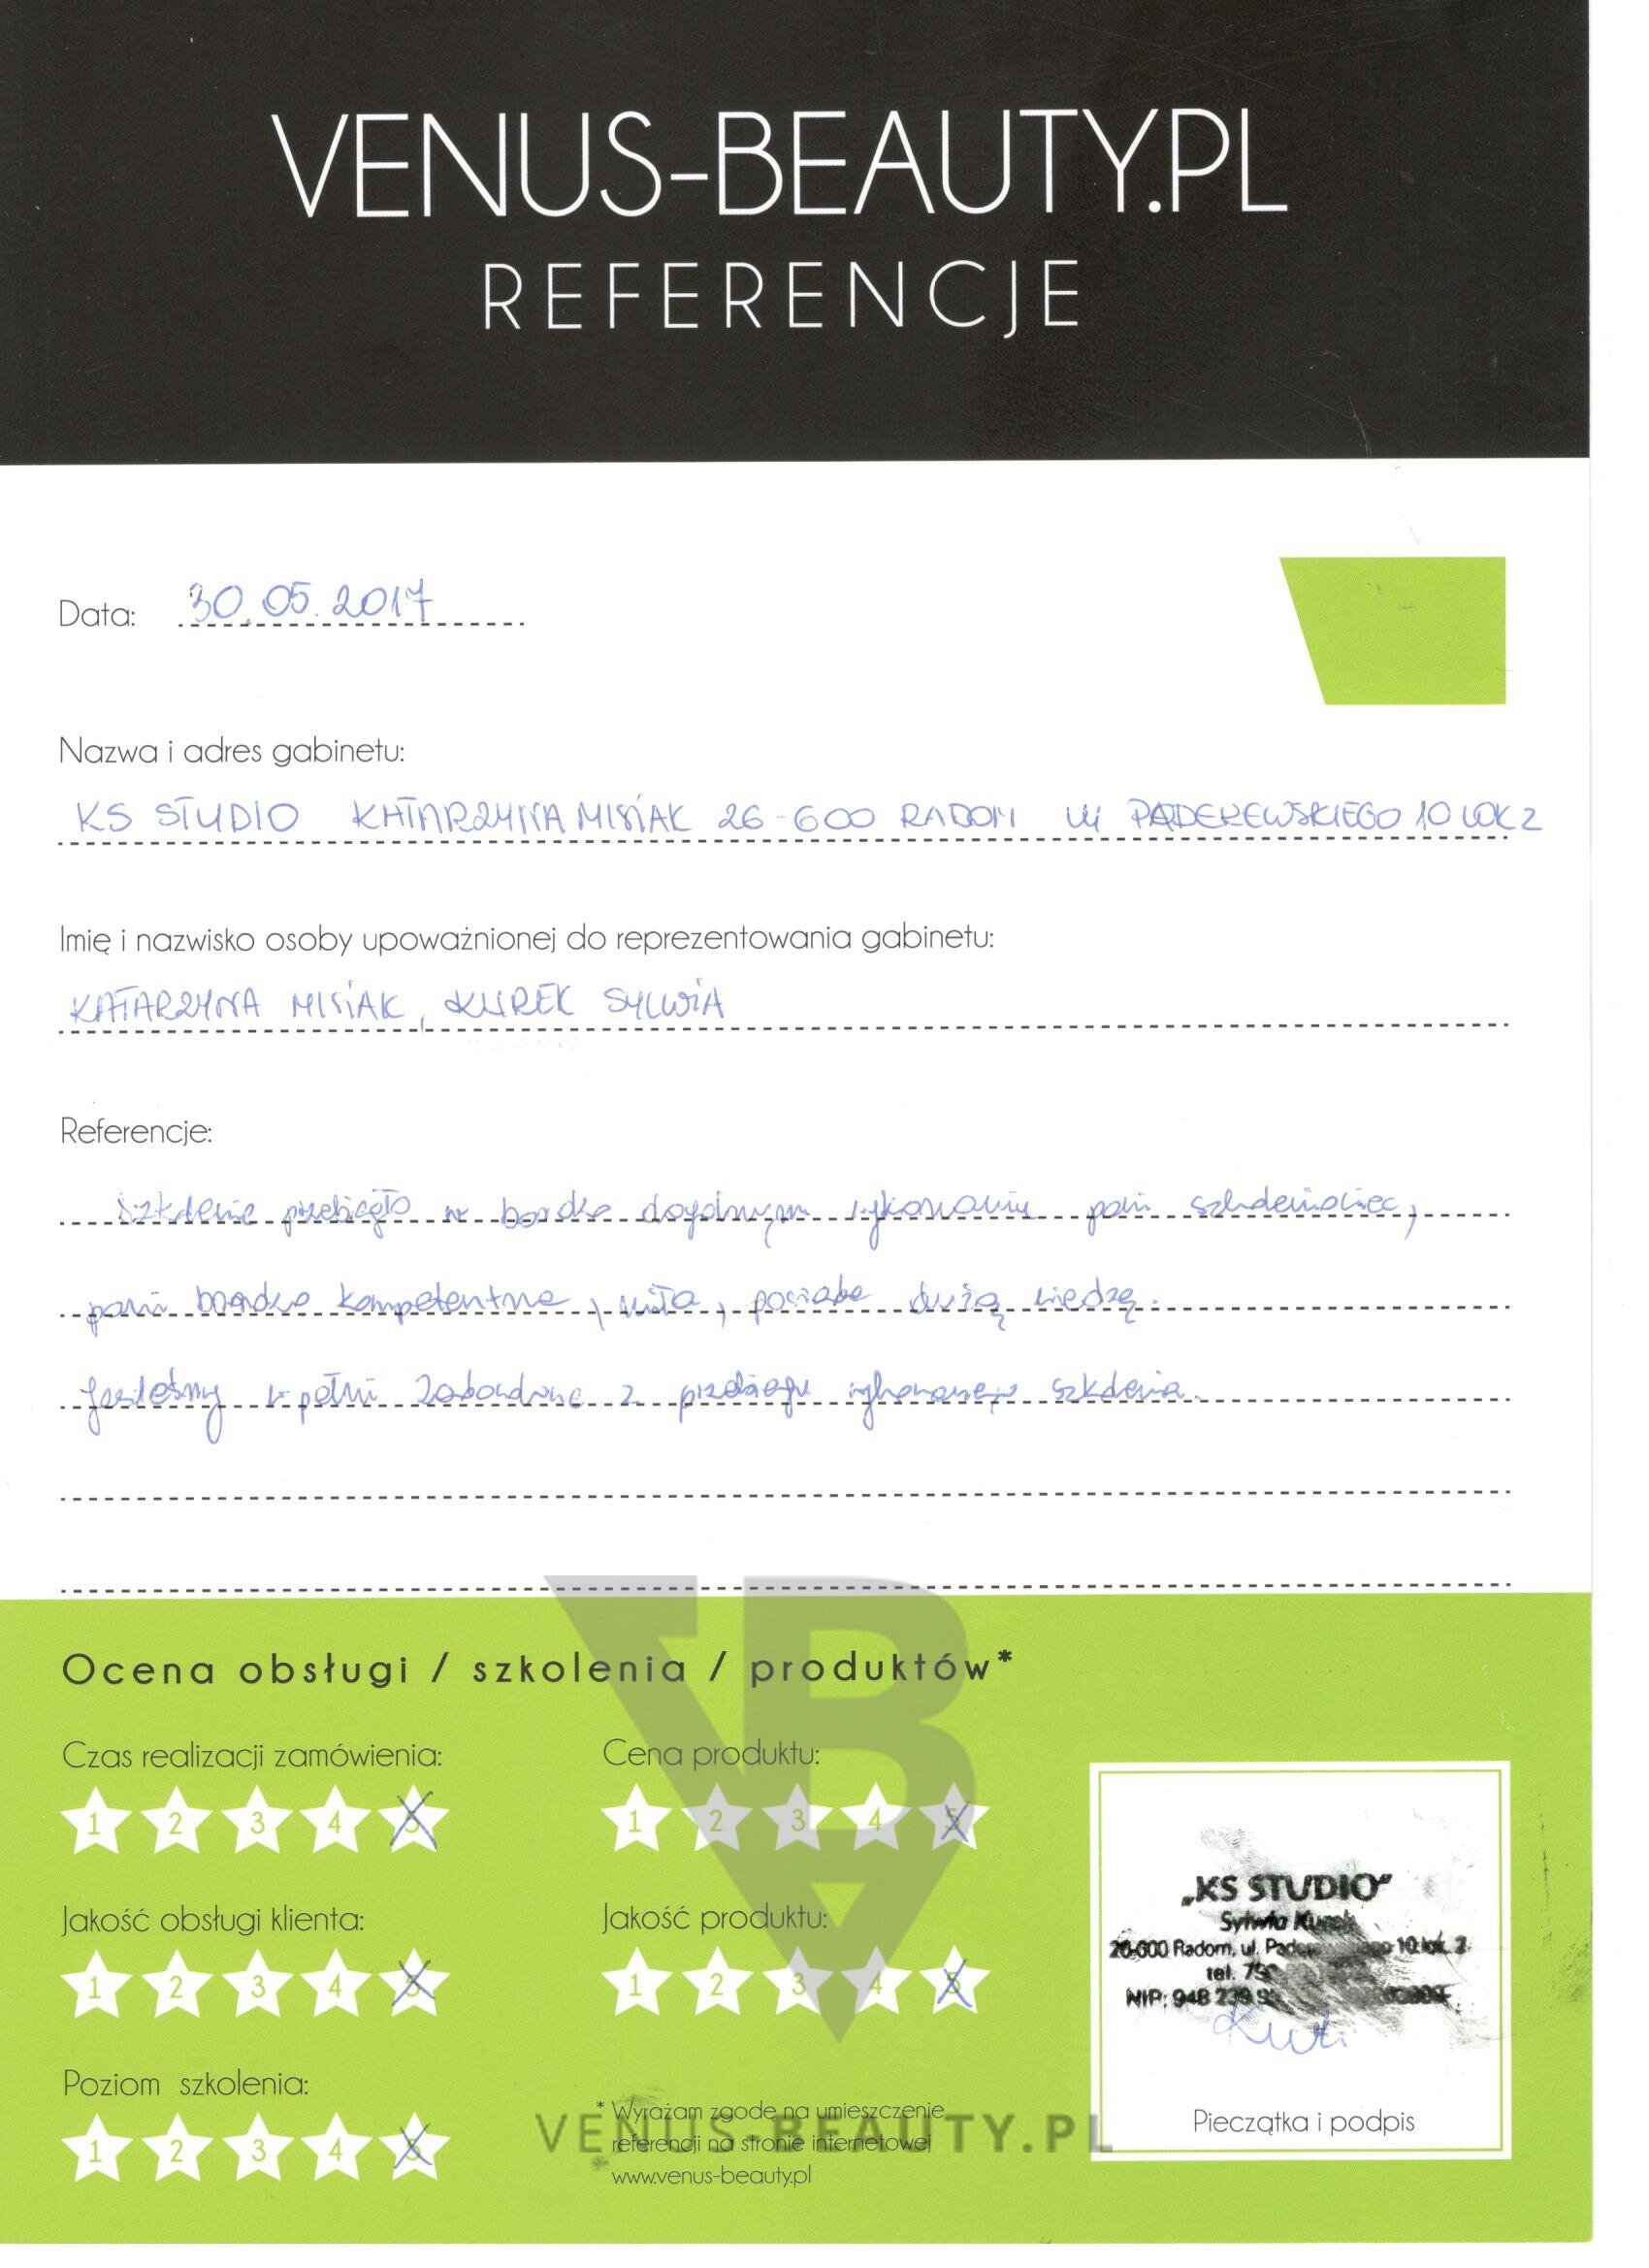 VENUS-BEAUTY.PL
REFERENCJE
Data: 30.05.2017
Nazwa i adres gabinetu:
KS STUDIO KATARZYNA MISIAK 26-600 RADOM Ul PADEREWSKIEGO 10 LOK 2
Imię i nazwisko osoby upoważnionej do reprezentowania gabinetu:
KATARZYNA MISIAK, KUREK SYLWIA
Referencje:
Szkolenie przebiegło w bardzo dogodnym wykonaniu pani
pani bardzo kompetentna, miła, posiada dużą wiedzę.
Jesteśmy w pełni zadowolone z przebiegu wykonanego szkolenia.
Ocena obsługi / szkolenia / produktów*
Czas realizacji zamówienia:
1 2 3 4 5
Cena produktu:
1 2 3 4 5
Jakość obsługi klienta:
1 2 3 4 5
Jakość produktu:
1 2 3 4 5
Poziom szkolenia:
1 2 3 4 5
* Wyrażam zgodę na umieszczenie
referencji na stronie internetowej
www.venus-beauty.pl
„KS STUDIO"
Sylwia Kurek
Radom, ul. 10 lok. 2
tel.
NIP: 948
Pieczątka i podpis
VBA
VENUS-BEAUTY.PL